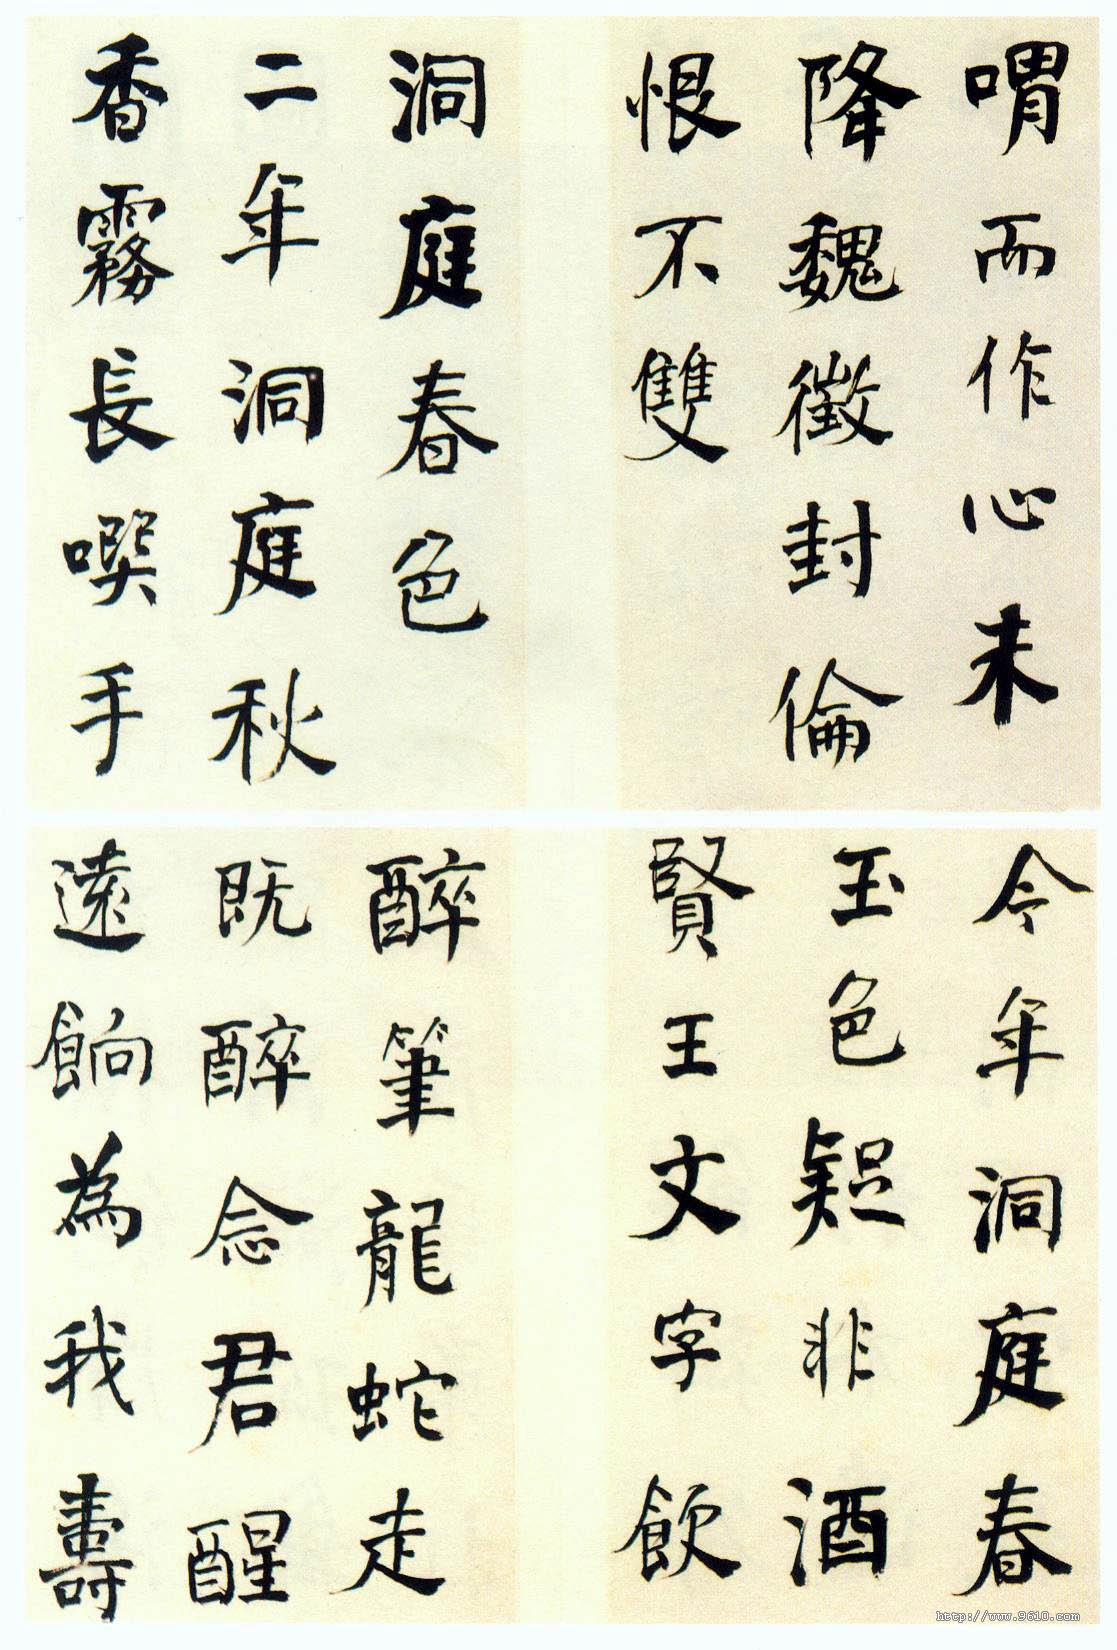 喟而作心未
降魏徵封倫
恨不雙
洞庭春色
二年洞庭秋
香霧長噀手
今年洞庭春
玉色疑非酒
賢王文字飲
醉筆龍蛇走
既醉念君醒
遠餉為我壽
http://www.9610.com